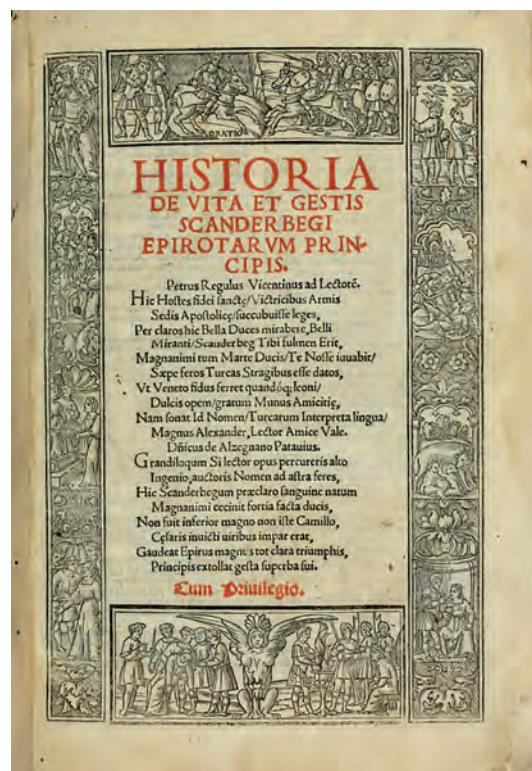 ORATIO
HISTORIA
DE VITA ET GESTIS
SCANDERBEGI
EPIROTARVM PRIN-
CIPIS.
Petrus Regulus Vicentinus ad Lectorē.
Hic Hostes fidei sanctę/Victricibus Armis
Sedis Apostolicę/succubuisse leges,
Per claros hic Bella Duces mirabere, Belli
Miranti/Scanderbeg Tibi fulmen Erit,
Magnanimi tum Marte Ducis/Te Nosse iuuabit/
Sæpe feros Turcas Stragibus esse datos,
Vt Veneto fidus ferret quandóq; leoni/
Dulcis opem/gratum Munus Amicitię,
Nam sonat Id Nomen/Turcarum Interpreta lingua/
Magnus Alexander, Lector Amice Vale.
Dñicus de Alzegnano Patauius.
Grandiloquum Si lector opus percureris alto
Ingenio, auctoris Nomen ad astra feres,
Hic Scanderbegum præclaro sanguine natum
Magnanimi cecinit fortia facta ducis,
Non fuit inferior magno non iste Camillo,
Cęsaris inuicti uiribus impar erat,
Gaudeat Epirus magnus tot clara triumphis,
Principis extollat gesta superba sui.
Cum Priuilegio.